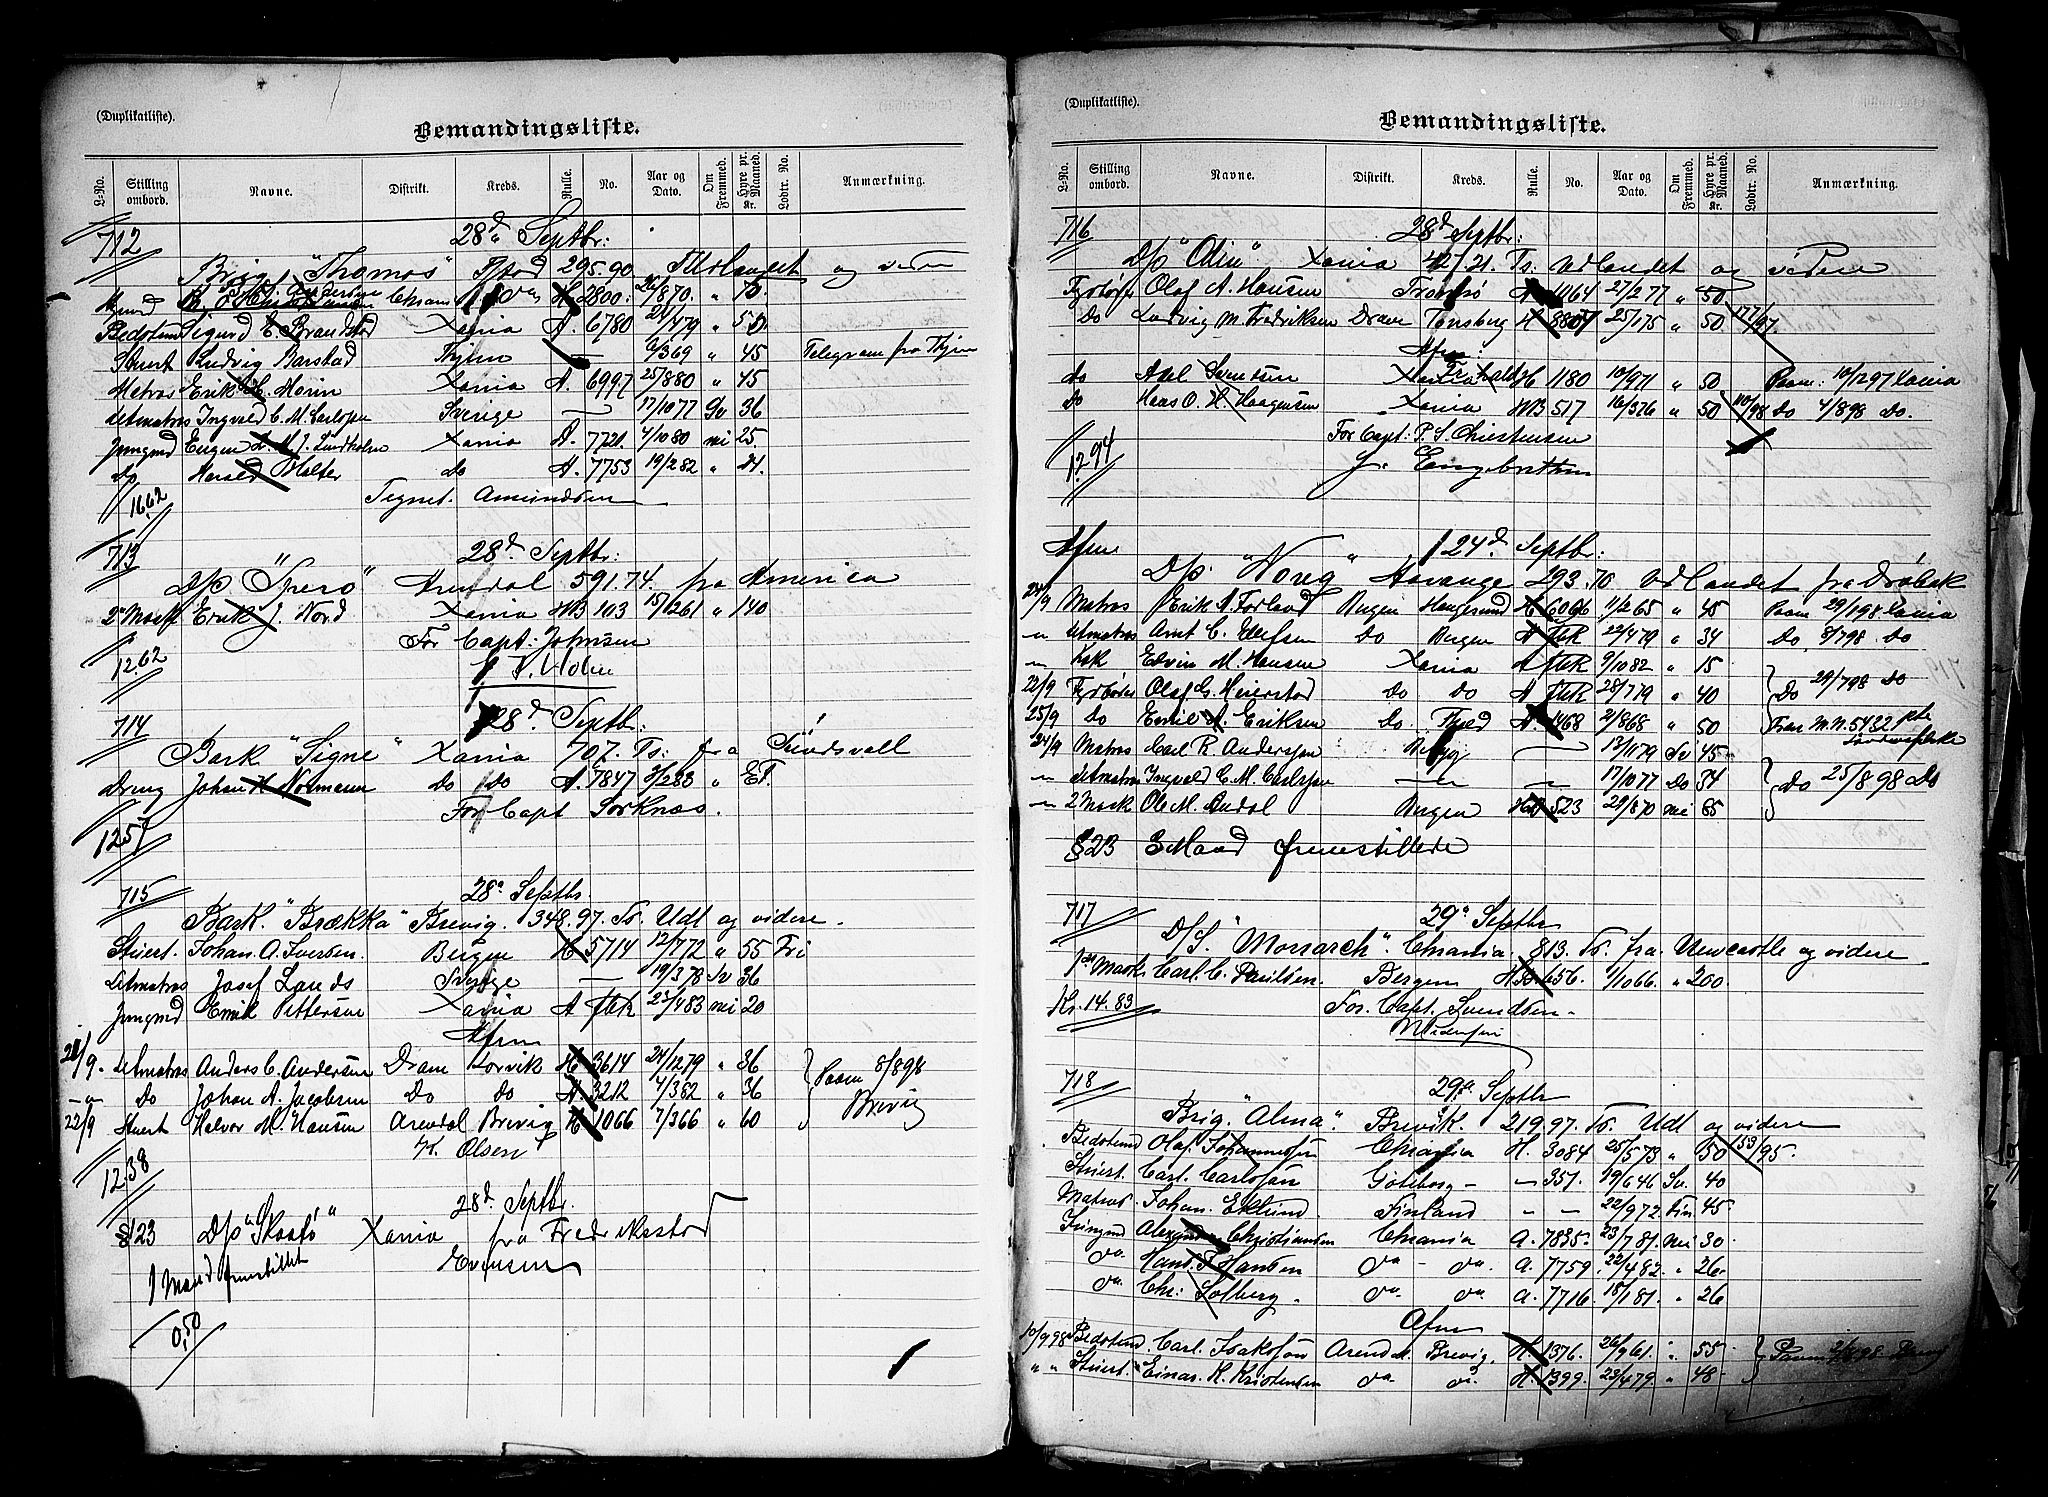 (Duplikatliste).
Bemandingsliste.
L-No. Stilling ombord. Navne. Distrikt. Kreds. Rulle. No. Aar og Dato. Om Fremmed. Hyre pr. Maaned. Kr. Lodtr. No. Anmærkning.
712 28d Septbr:
Brig "Thomas" 295.90 Til Udlandet og videre
H 2800. 70
Bedstmd Sigurd E. Brandstød Xania A. 6780 50
Stuert Ludvig Barstad Thjem — 6/369 " 45 Telegram fra Thjem
Matros Erik E. Morin Xania A. 6997 25/880 " 45
Letmatros Ingvald C. M. Carlsson Sverige — 17/1077 Sv 36
Jungmd Eugen J. Lindholm Xania A. 7721. 4/1080 ni 25.
Do Harald Holter do A. 7753 19/282 " 21.
16.62 Tegnet. Amundsen
713 28d. Septbr:
D/s "Sperø" Arendal 591.74. fra America
2n Mask Erik J. Nord Xania MB 103 15/1261 " 140
For Capt: Johnsen
12.62
714 28d Septbr:
Bark "Signe" Xania 707. Ts: fra Sundsvall
Dreng Johan A. Normann do do A. 7847 3/283 "
For Capt Sorknæs.
12.57
715 28d Septbr
Bark. "Brække" Brevig. 348.97. To. Udl og videre.
Stuert. Johan A. Iversen. Bergen H 5714 12/772 " 55 Fri
Letmatros Josef Lands Sverige — 19/378 Sv 36
Jungmd Emil Pettersen Xania A 23/483 ni 20
Afm
21/9. Letmatros Anders C. Andersen Dram Korvik H 3614 24/1279 " 36 Paam 8/898 Brevig
-"- Do Johan A. Jacobsen Do do A 3212 4/382 " 36
22/9 Stuert Halvor M. Hansen Arendal Brevig H 1066 7/366 " 60
Olsen
12.38
28d. Septbr.
§ 23 D/s "Skatø" Xania fra Fredriksstad
1 Mand fremstillet Evensen
0,50
(Duplikatliste).
Bemandingsliste.
L-No. Stilling ombord. Navne. Distrikt. Kreds. Rulle. No. Aar og Dato. Om Fremmed. Hyre pr. Maaned. Kr. Lodtr. No. Anmærkning.
716 28d Septbr:
D/s "Odin" Xania Ts: Udlandet og videre
Fyrbøder Olaf A. Hansen Tromsø A 1164 27/277 " 50
Do Ludvig M. Fredriksen Dram Tønsberg H 25/175 " 50 177/97
Afm:
do Axel Svendsen H 1180 10/971 " 50 Paam: 10/1297 Xania
Do Haas O. H. Haagensen Xania MB 517 16/376 " 50 10/98 Do 4/898 Do.
For Capt: P. S. Christensen
12.94 Engebretsen
Afm 24d. Septbr:
D/s "Noreg" Stavanger 293.70 Udlandet fra Drøbak
24/9 Matros Erik A. Forland Bergen Haugesund H 6066 11/265 " 45 Paam 29/198 Xania
-"- Letmatros Arnt C. Ellefsen Do Bergen A 22/479 " 34 Do, 8/798 Do
-"- Kok Edvin M. Hansen Xania A 9/1082 " 15
22/9 Fyrbøder Olaf G. Meierstad Do Do A 28/779 " 40 Do 29/798 Do
25/9 Do Emil A. Eriksen Do A. 1468 2/868 " 50 Fra M.N. 5422
24/9 Matros Carl R. Andersson 13/1179 Sv 45
-"- Letmatros Ingvald C. M. Carlsson — — 17/1077 Do 34 Do 25/898 Do
-"- 2 Mask Ole M. Audal Bergen 523 29/870 ni 65
§ 23 3 Mand fremstillede
717 29d Septbr
D/S. "Monarch". Chrania 813. To. fra Newcastle og videre
1st Mask. Carl. C. Paulsen. Bergen MB 656. 1/1066. " 200
Kr. 14.83 For. Capt. Svendsen.
718 29d. Septbr
Brig. "Alma". Brevik. 219.97. To. Udl og videre
Bedstmd Olaf. Johannessen Chrania H. 3084 25/573 " 50 159/95.
Stuert. Carl. Carlsson Göteborg — — 357. 19/646 Sv. 40
Matros. Johan. Eklund. Finland — — 22/972. Fin 45.
Jungmd Alexander Christiansen Chrania A. 7835. 23/781. ni 30.
da Hans. F. Hansen da — da. A. 7759. 22/482. " 26.
da. Chr: Solberg. da. da. A. 7716. 18/181. " 26
Afm
10/9.98 Bedstmd Carl. Isaksson Arendal. Brevig. H. 1376. 26/961. " 55. Paam
" " Stuert. Einar. K. Kristensen da. da. H. 1399. 23/479. " 48.